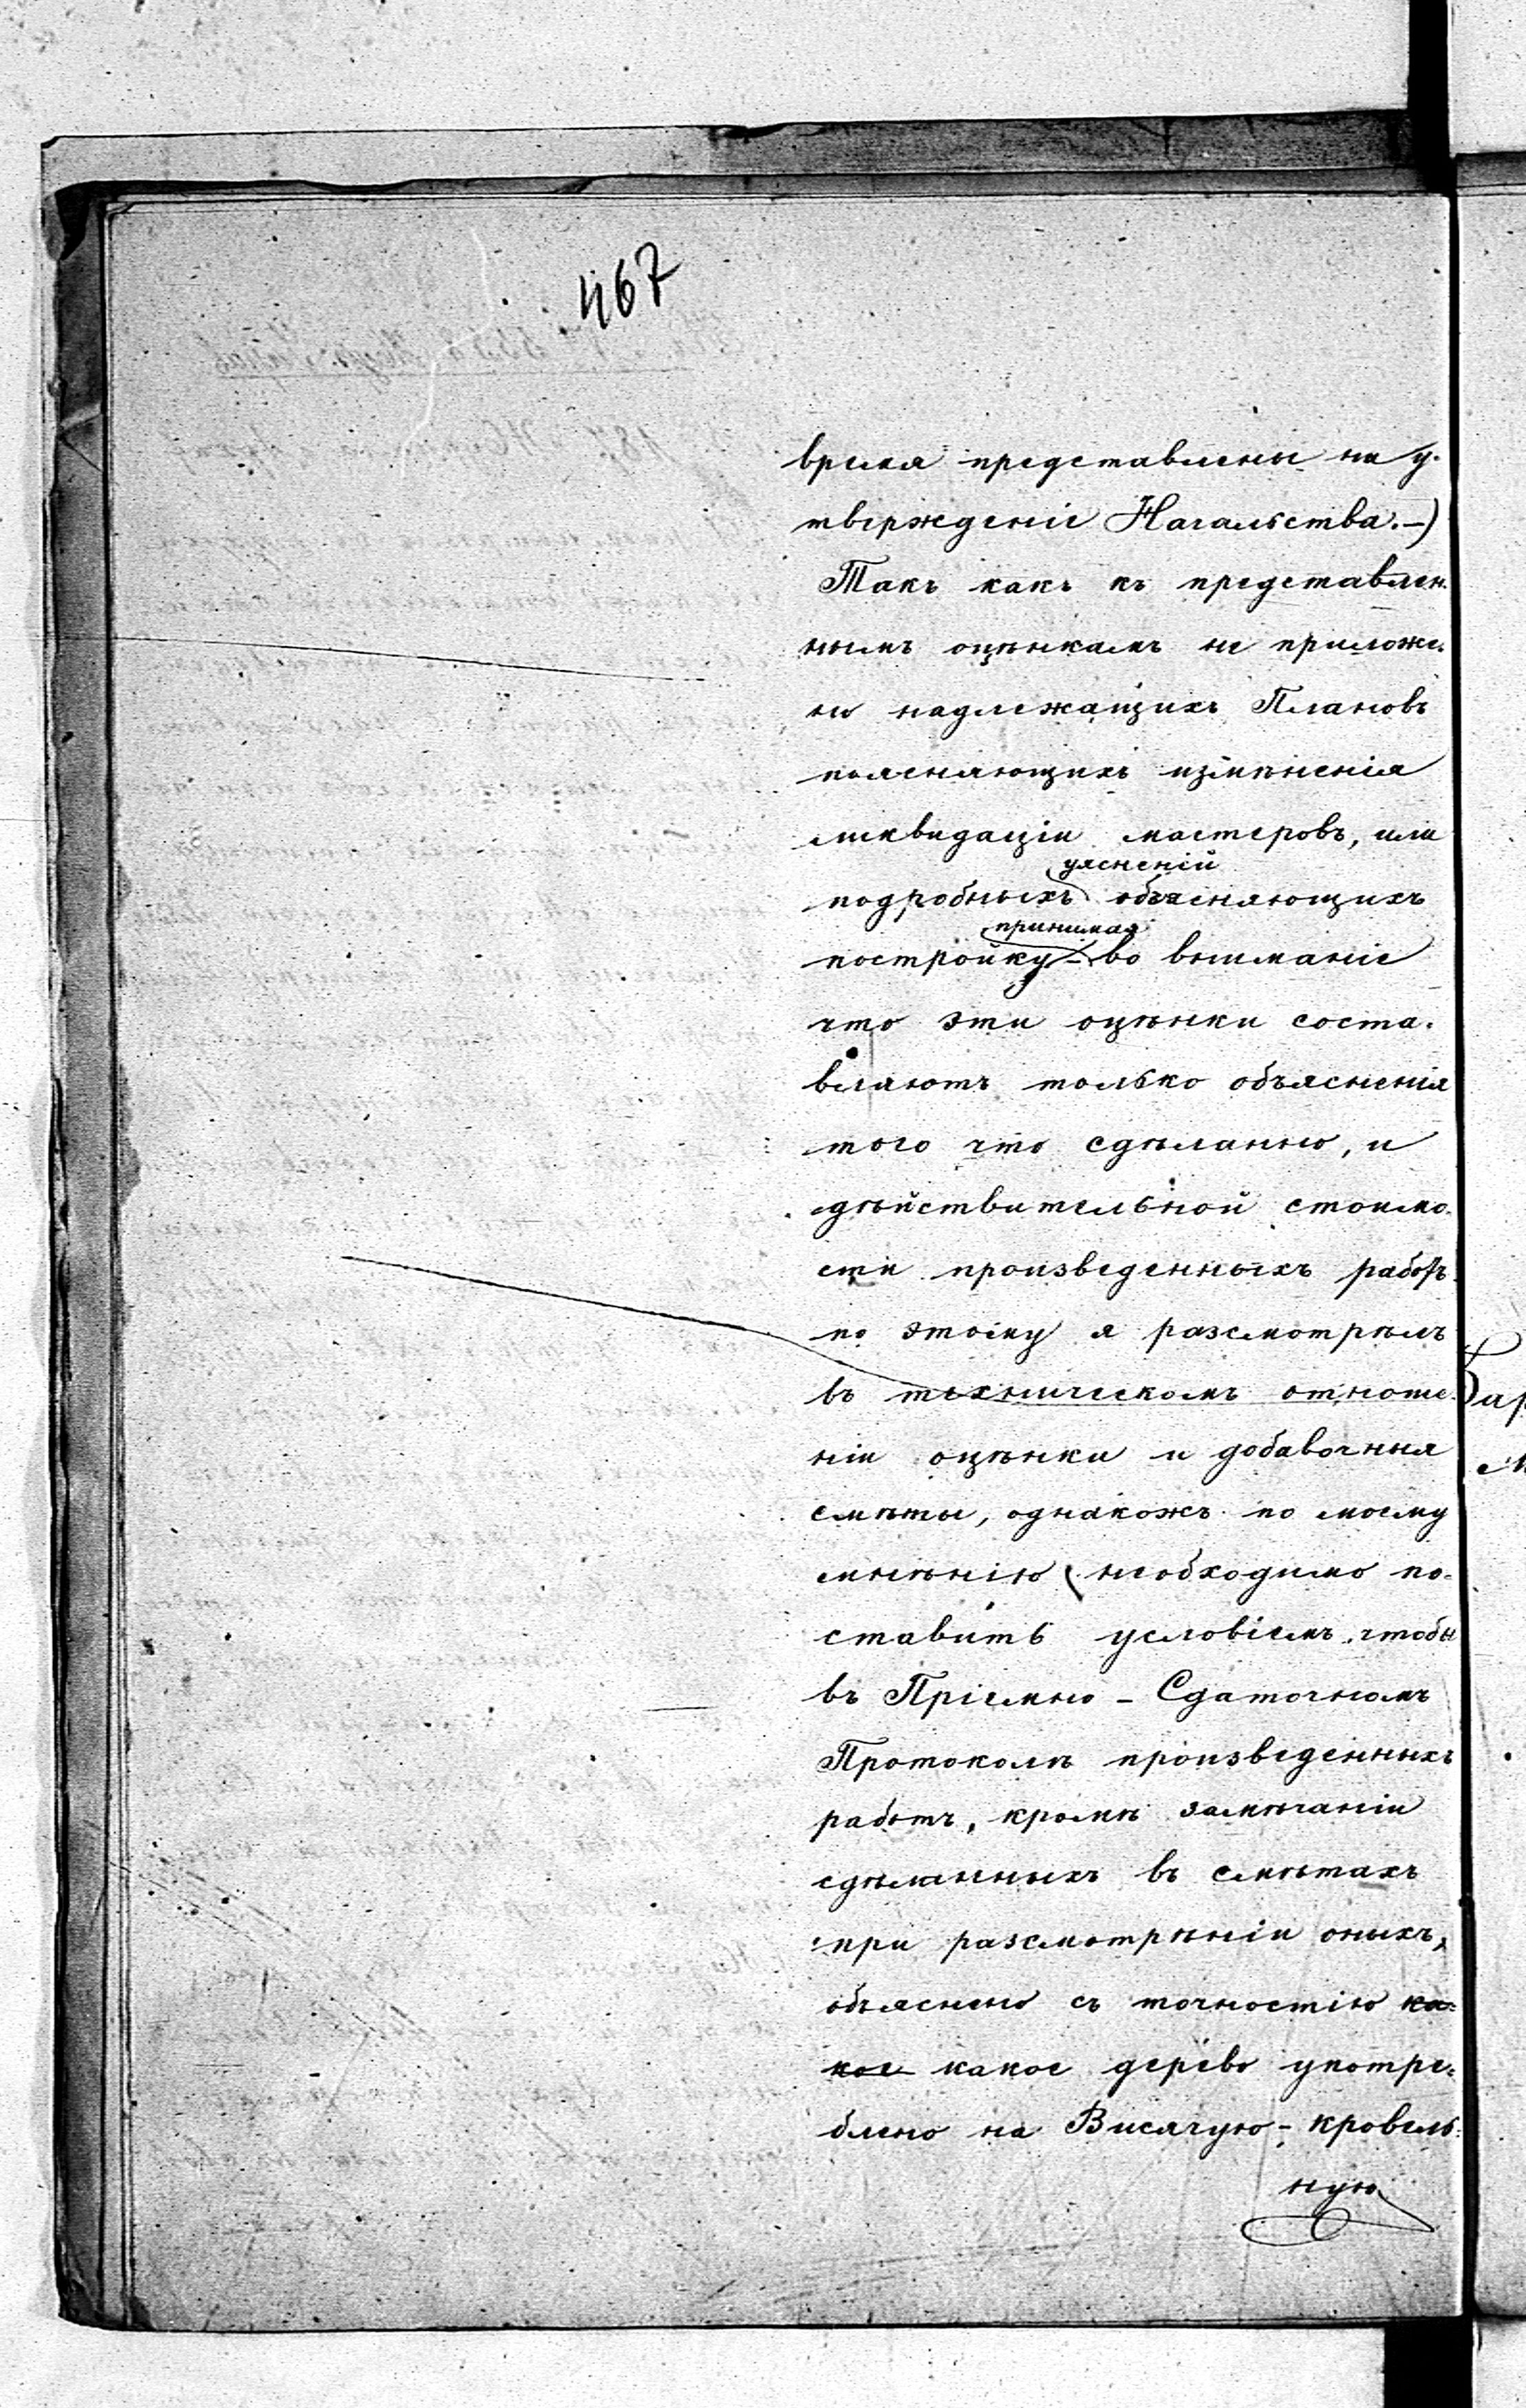 467
время представлены на у-
твержденіе Начальства. —)
Такъ какъ къ представлен-
нымъ оцѣнкамъ не приложе-
но надлежащихъ Плановъ
поясняющихъ измѣненія
ликвидаціи мастеровъ, или
уясненій
подробныхъ объясняющихъ
принимая
постройку - во вниманіе
что эти оцѣнки соста-
вляютъ только объясненія
того что сдѣланно, и
дѣйствительной стоимо-
сти произведенныхъ работъ
по этому я разсмотрѣлъ
въ техническомъ отноше-
ніи оцѣнки и добавочныя
смѣты, однакожъ по моему
мнѣнію необходимо по-
ставить условіемъ, чтобы
въ Пріемно - Сдаточномъ
Протоколѣ произведенныхъ
работъ, кромѣ замѣчаніи
сдѣланныхъ въ смѣтахъ
при разсмотрѣніи оныхъ,
объяснено съ точностію ка-
кое какое дерево употре-
блено на Висячую - кровель-
ную